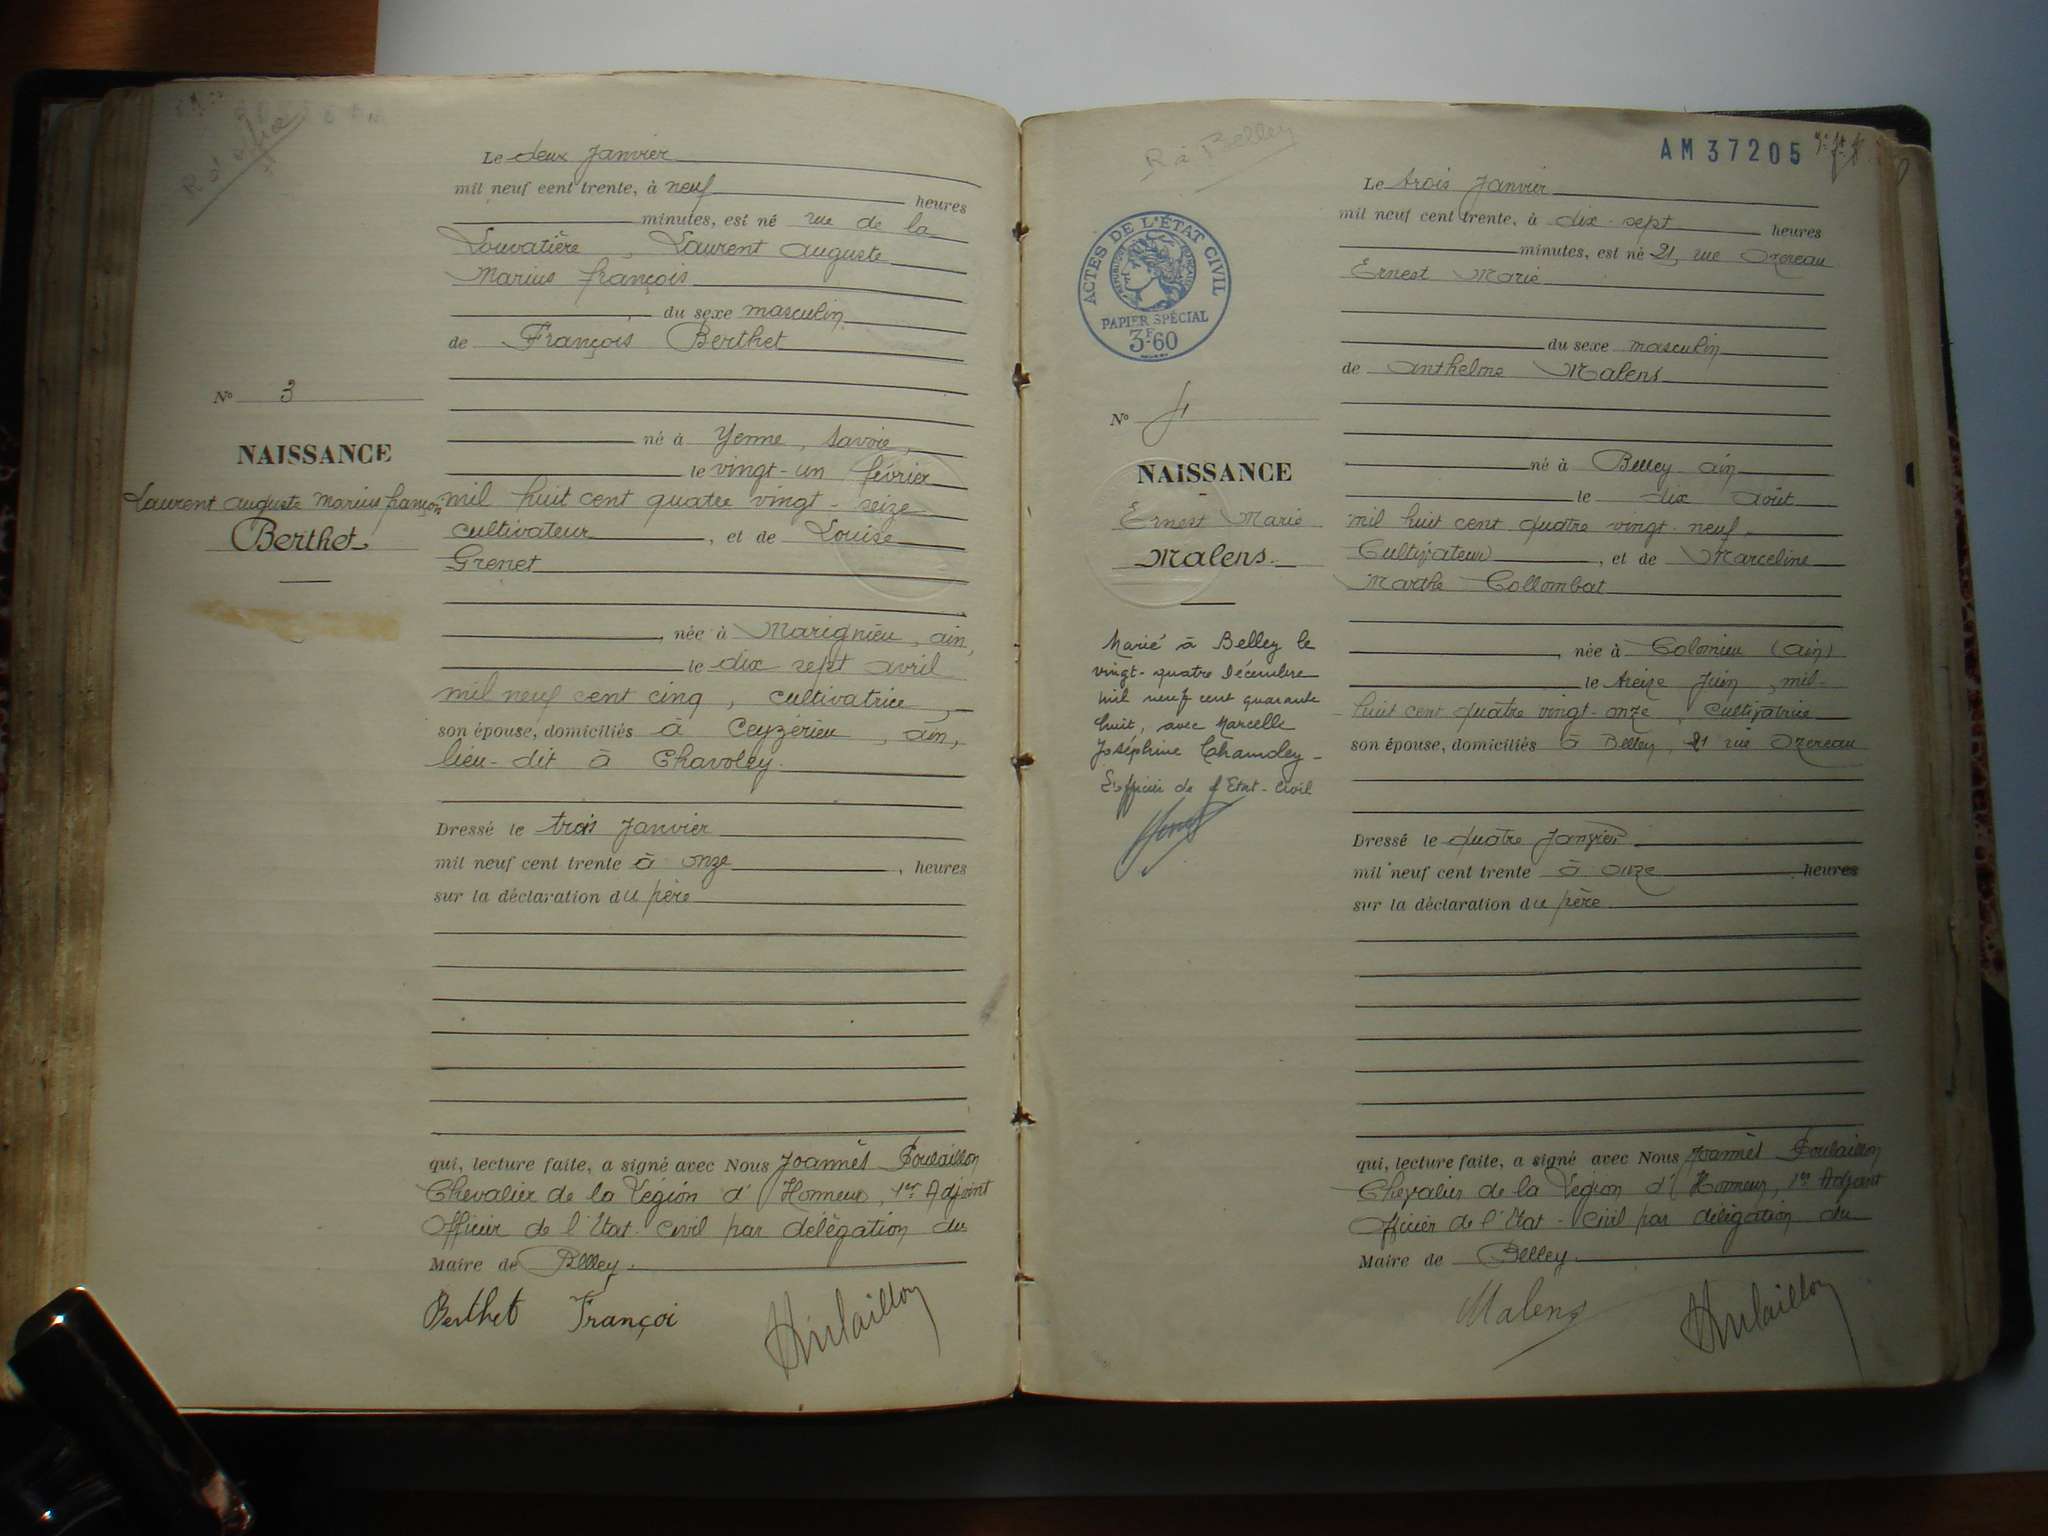 Le deux Janvier
mil neuf cent trente, à neuf heures
minutes, est né rue de la
Louvatière, Laurent Auguste
Marius François
du sexe masculin
de François Berthet
né à Yenne, Savoie,
le vingt-un février
mil huit cent quatre vingt-seize
cultivateur, et de Louise
Grenet
, née à Marignieu, ain,
le dix sept avril
mil neuf cent cinq, cultivatrice,
son épouse, domiciliés à Ceyzérieu, ain,
lieu-dit à Chavoley.
Dressé le trois Janvier
mil neuf cent trente à onze, heures
sur la déclaration du père
qui, lecture faite, a signé avec Nous Joannès Poulaillon
Chevalier de la Légion d'Honneur, 1er Adjoint
Officier de l'Etat-Civil par délégation du
Maire de Belley.
Berthet Françoi
No 3
NAISSANCE
Laurent Auguste Marius François
Berthet
R à Belley
AM 37205
ACTES DE L'ÉTAT CIVIL
PAPIER SPÉCIAL
3F60
No 4
NAISSANCE
Ernest Marie
Malens.
Marié à Belley le
vingt-quatre Décembre
mil neuf cent quarante
huit, avec Marcelle
Joséphine Chamoley-
L'officier de l'Etat-Civil
Le trois Janvier
mil neuf cent trente, à dix-sept heures
minutes, est né 21, rue
Ernest Marie
du sexe masculin
de Anthelme Malens
né à Belley ain
le dix Août
mil huit cent quatre vingt-neuf,
Cultivateur, et de Marceline
Marthe Collombat
, née à Colomieu (ain)
le treize Juin, mil-
huit cent quatre vingt-onze, cultivatrice
son épouse, domiciliés à Belley, 21 rue
Dressé le quatre Janvier
mil neuf cent trente à onze, heures
sur la déclaration du père
qui, lecture faite, a signé avec Nous Joannès Poulaillon
Chevalier de la Légion d'Honneur, 1er Adjoint
Officier de l'Etat-Civil par délégation du
Maire de Belley.
Malens